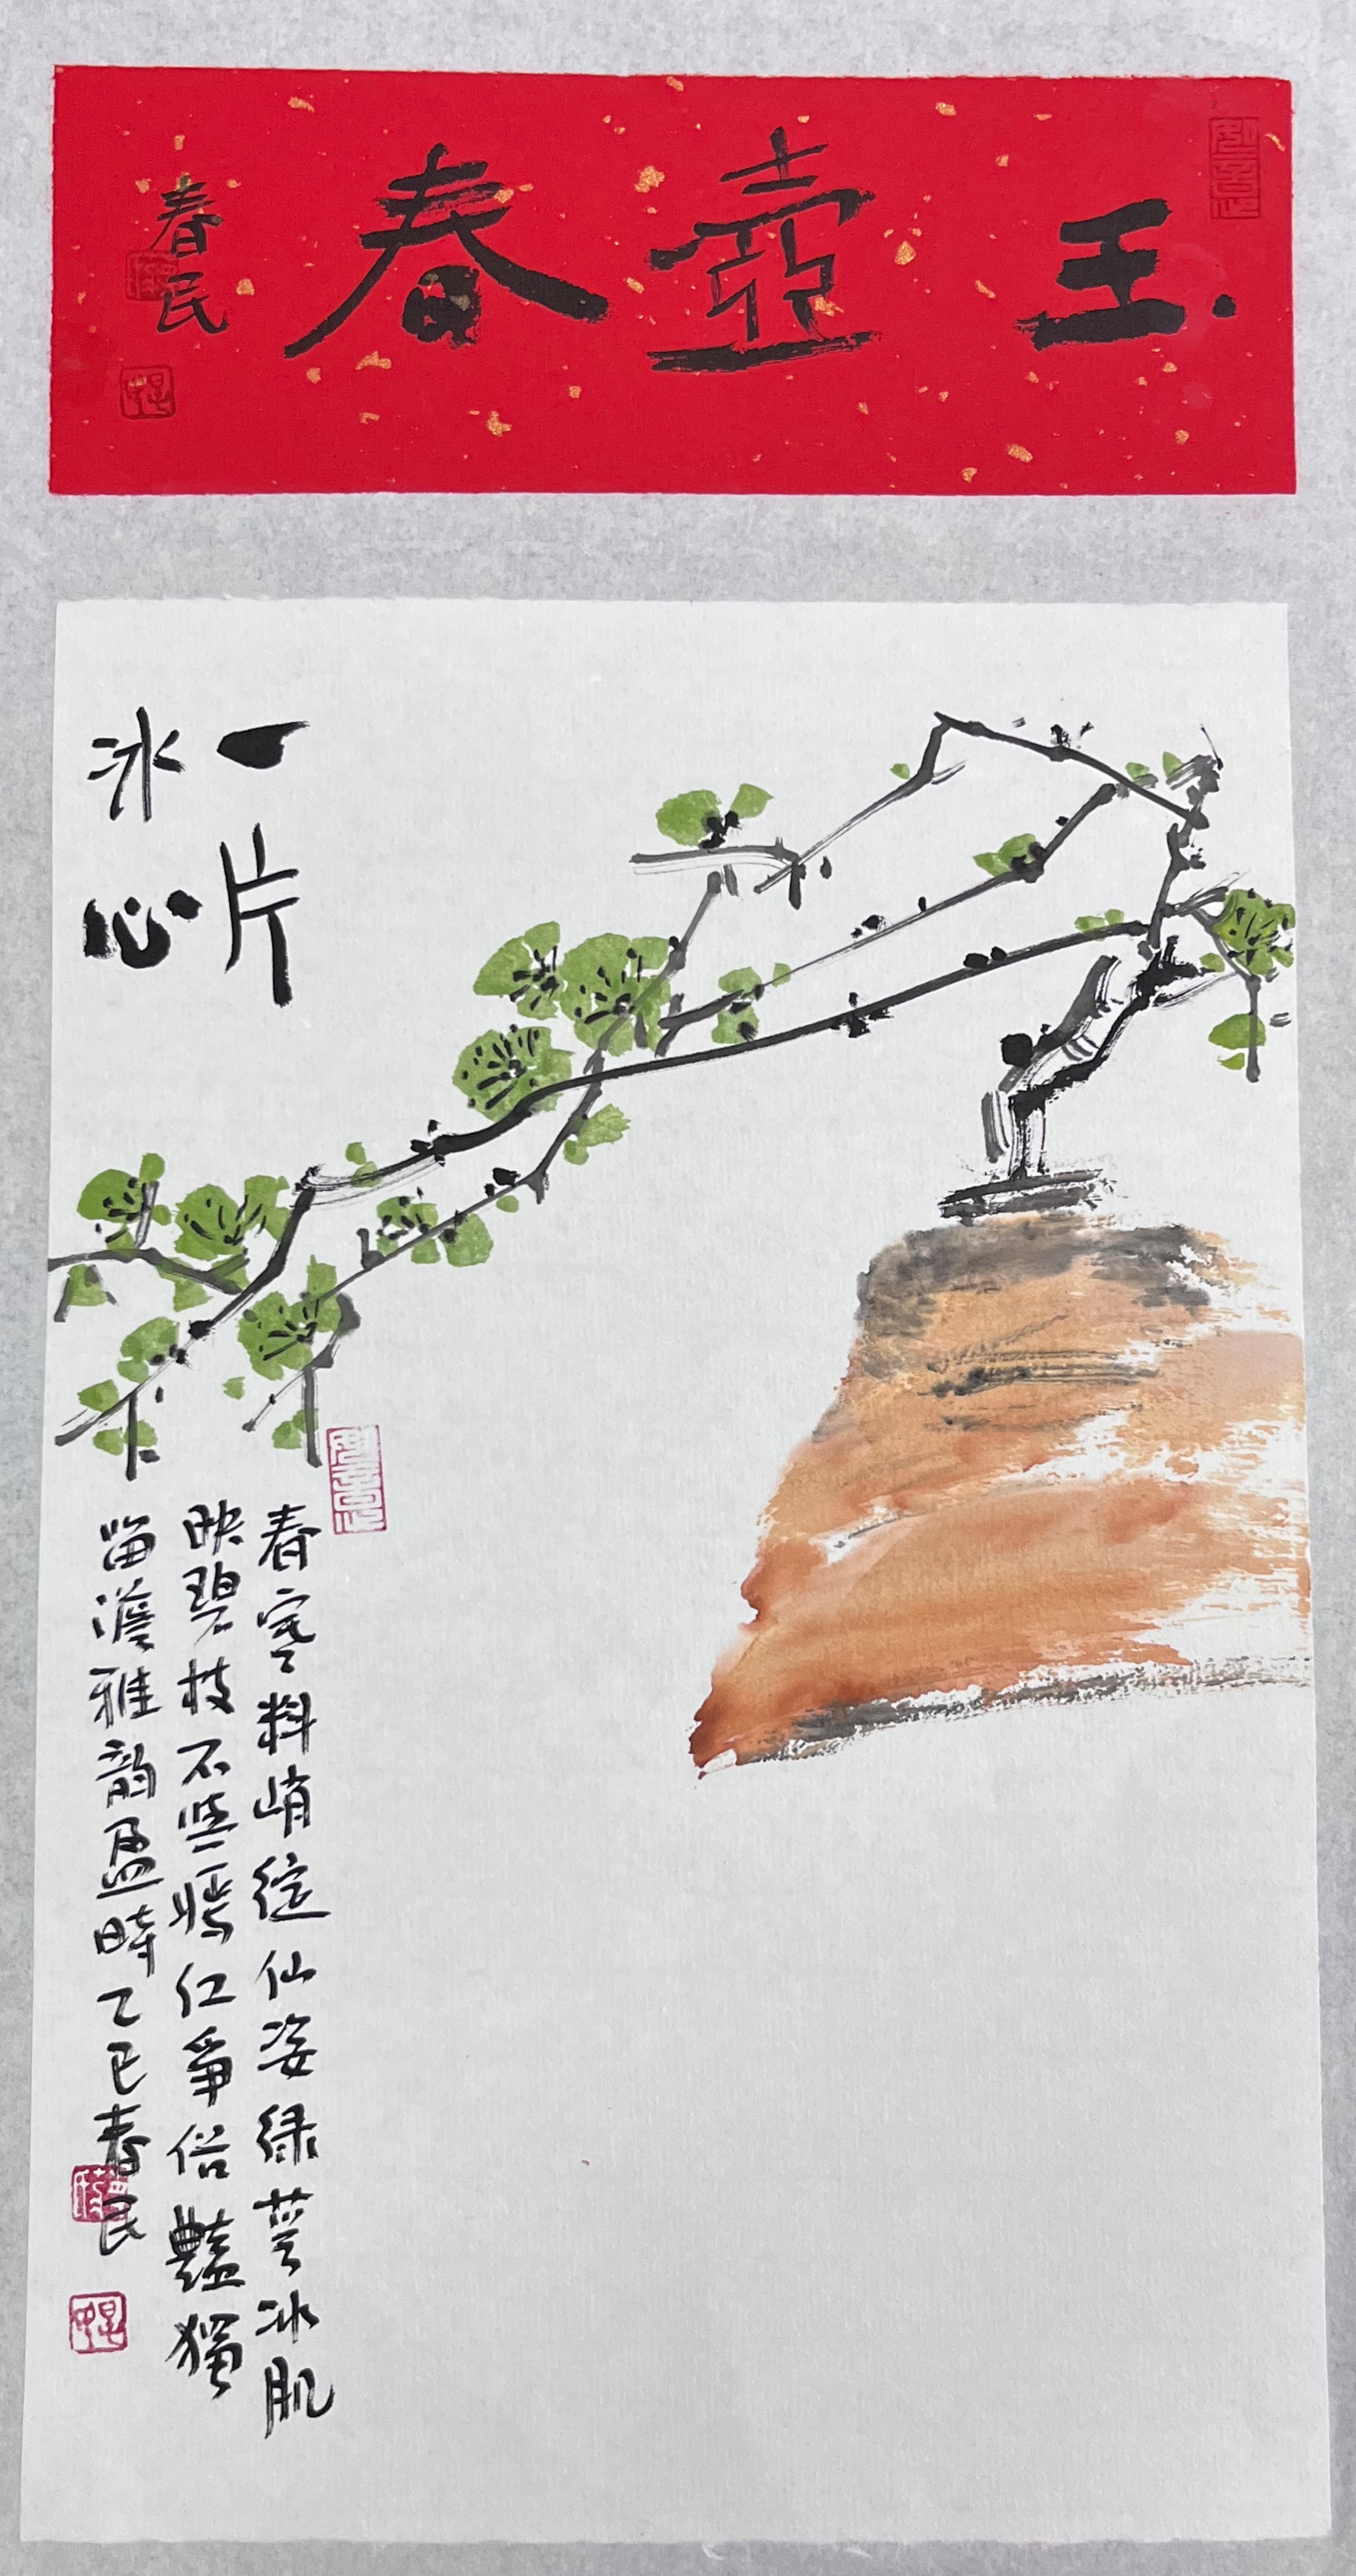 玉壺春
春民
一片
冰心
春寒料峭綻仙姿绿萼冰肌
映碧枝不與嫣红爭俗豔獨
留澹雅韵盈時乙巳春民